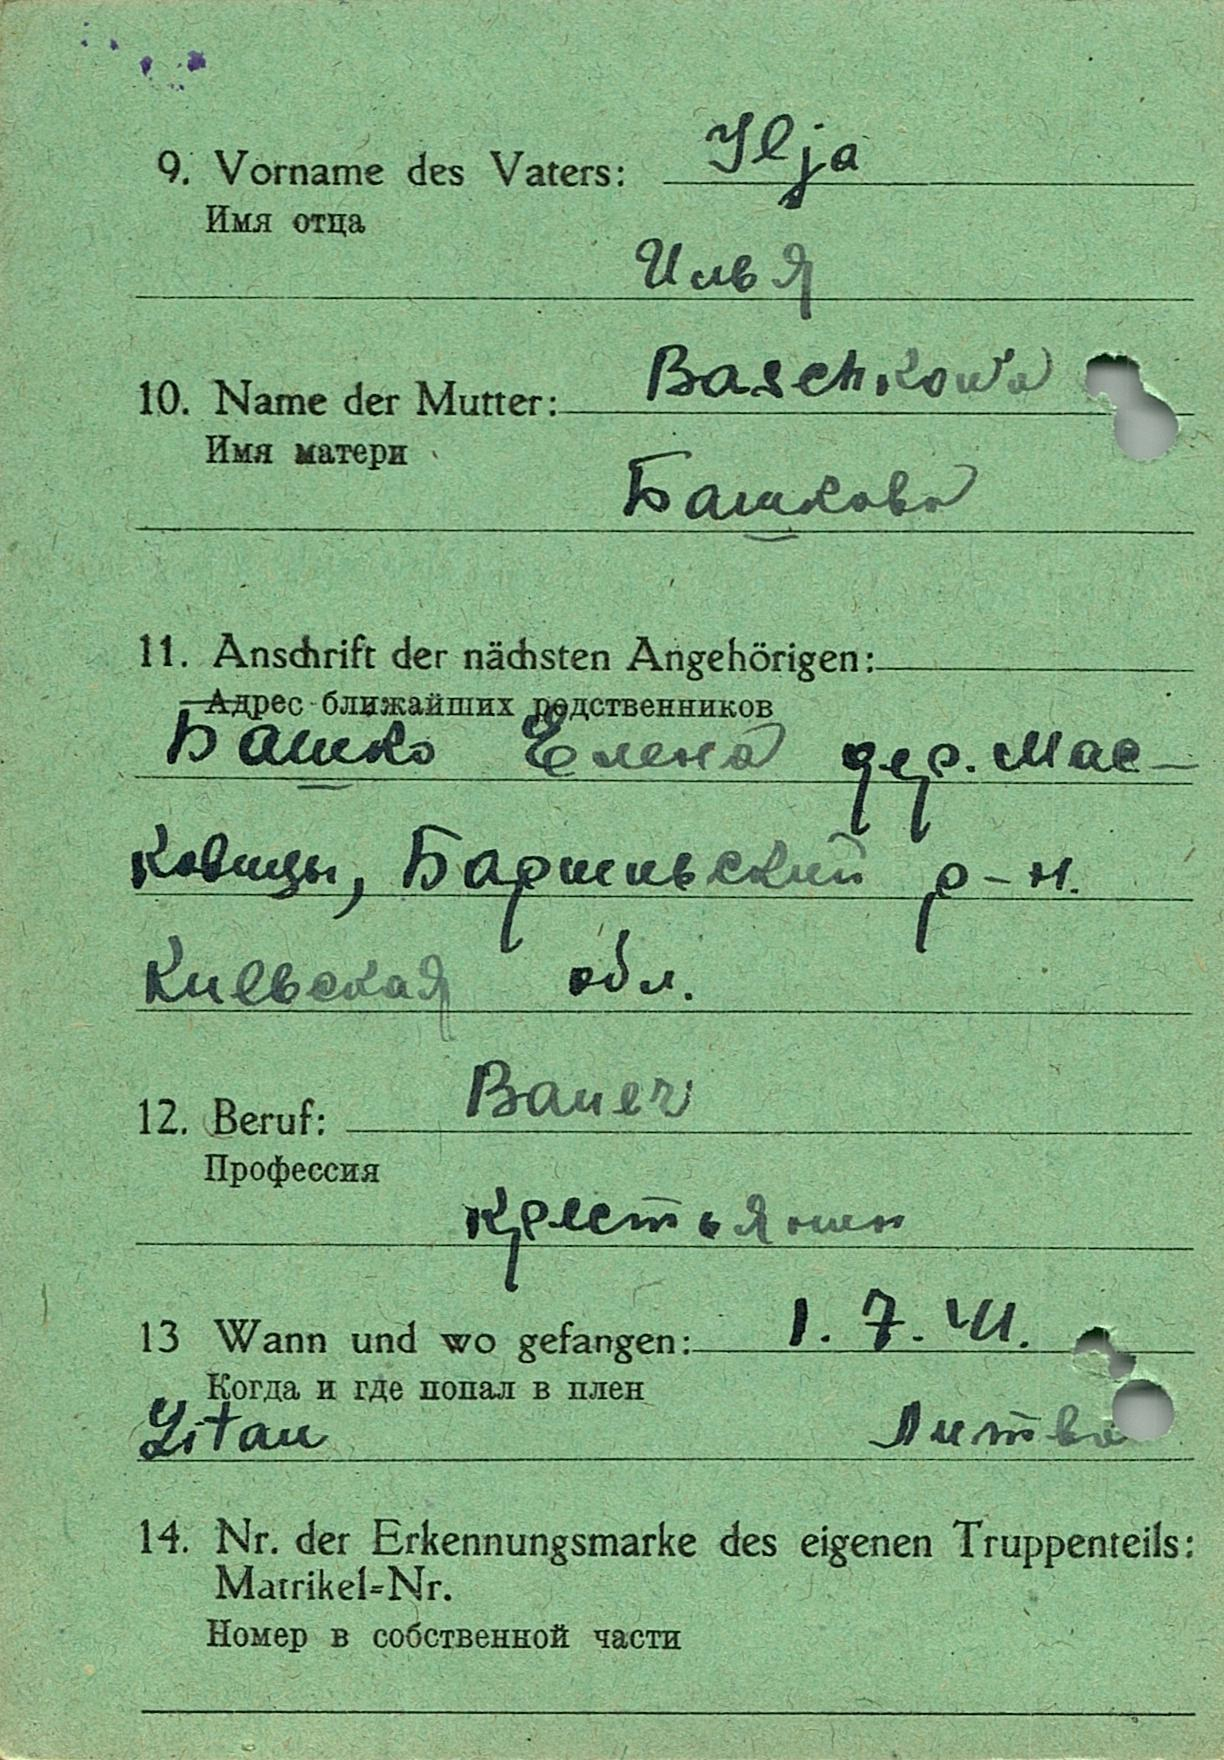 9. Vorname des Vaters: Ilja
Имя отца
Илья
10. Name der Mutter: Baschkowa
Имя матери
Башкова
11. Anschrift der nächsten Angehörigen:
Адрес ближайших родственников
Башко Елена дер. Мас-
ковцы, Баришьвский р-н.
Киевская обл.
12. Beruf: Bauer
Профессия
крестьянин
13 Wann und wo gefangen: 1.7.41.
Когда и где попал в плен
Litau Литва
14. Nr. der Erkennungsmarke des eigenen Truppenteils:
Matrikel-Nr.
Номер в собственной части